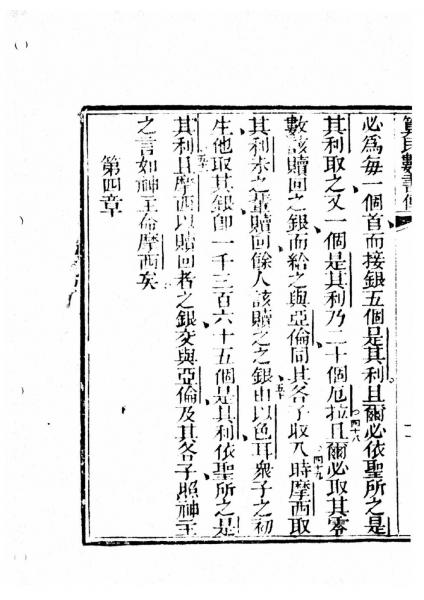 算民數書傳
必爲每一個首而接銀五個是其利且爾必依聖所之是
其利取之又一個是其利乃二十個厄拉且爾必取其零
四十八
數該贖回之銀而給之與亞倫同其各子取入時摩西取
四十九
其利未之輩贖回餘人該贖之之銀由以色耳衆子之初
五十
生他取其銀即一千三百六十五個是其利依聖所之是
其利且摩西以贖回者之銀交與亞倫及其各子照神主
五十一
之言如神主命摩西矣
第四章